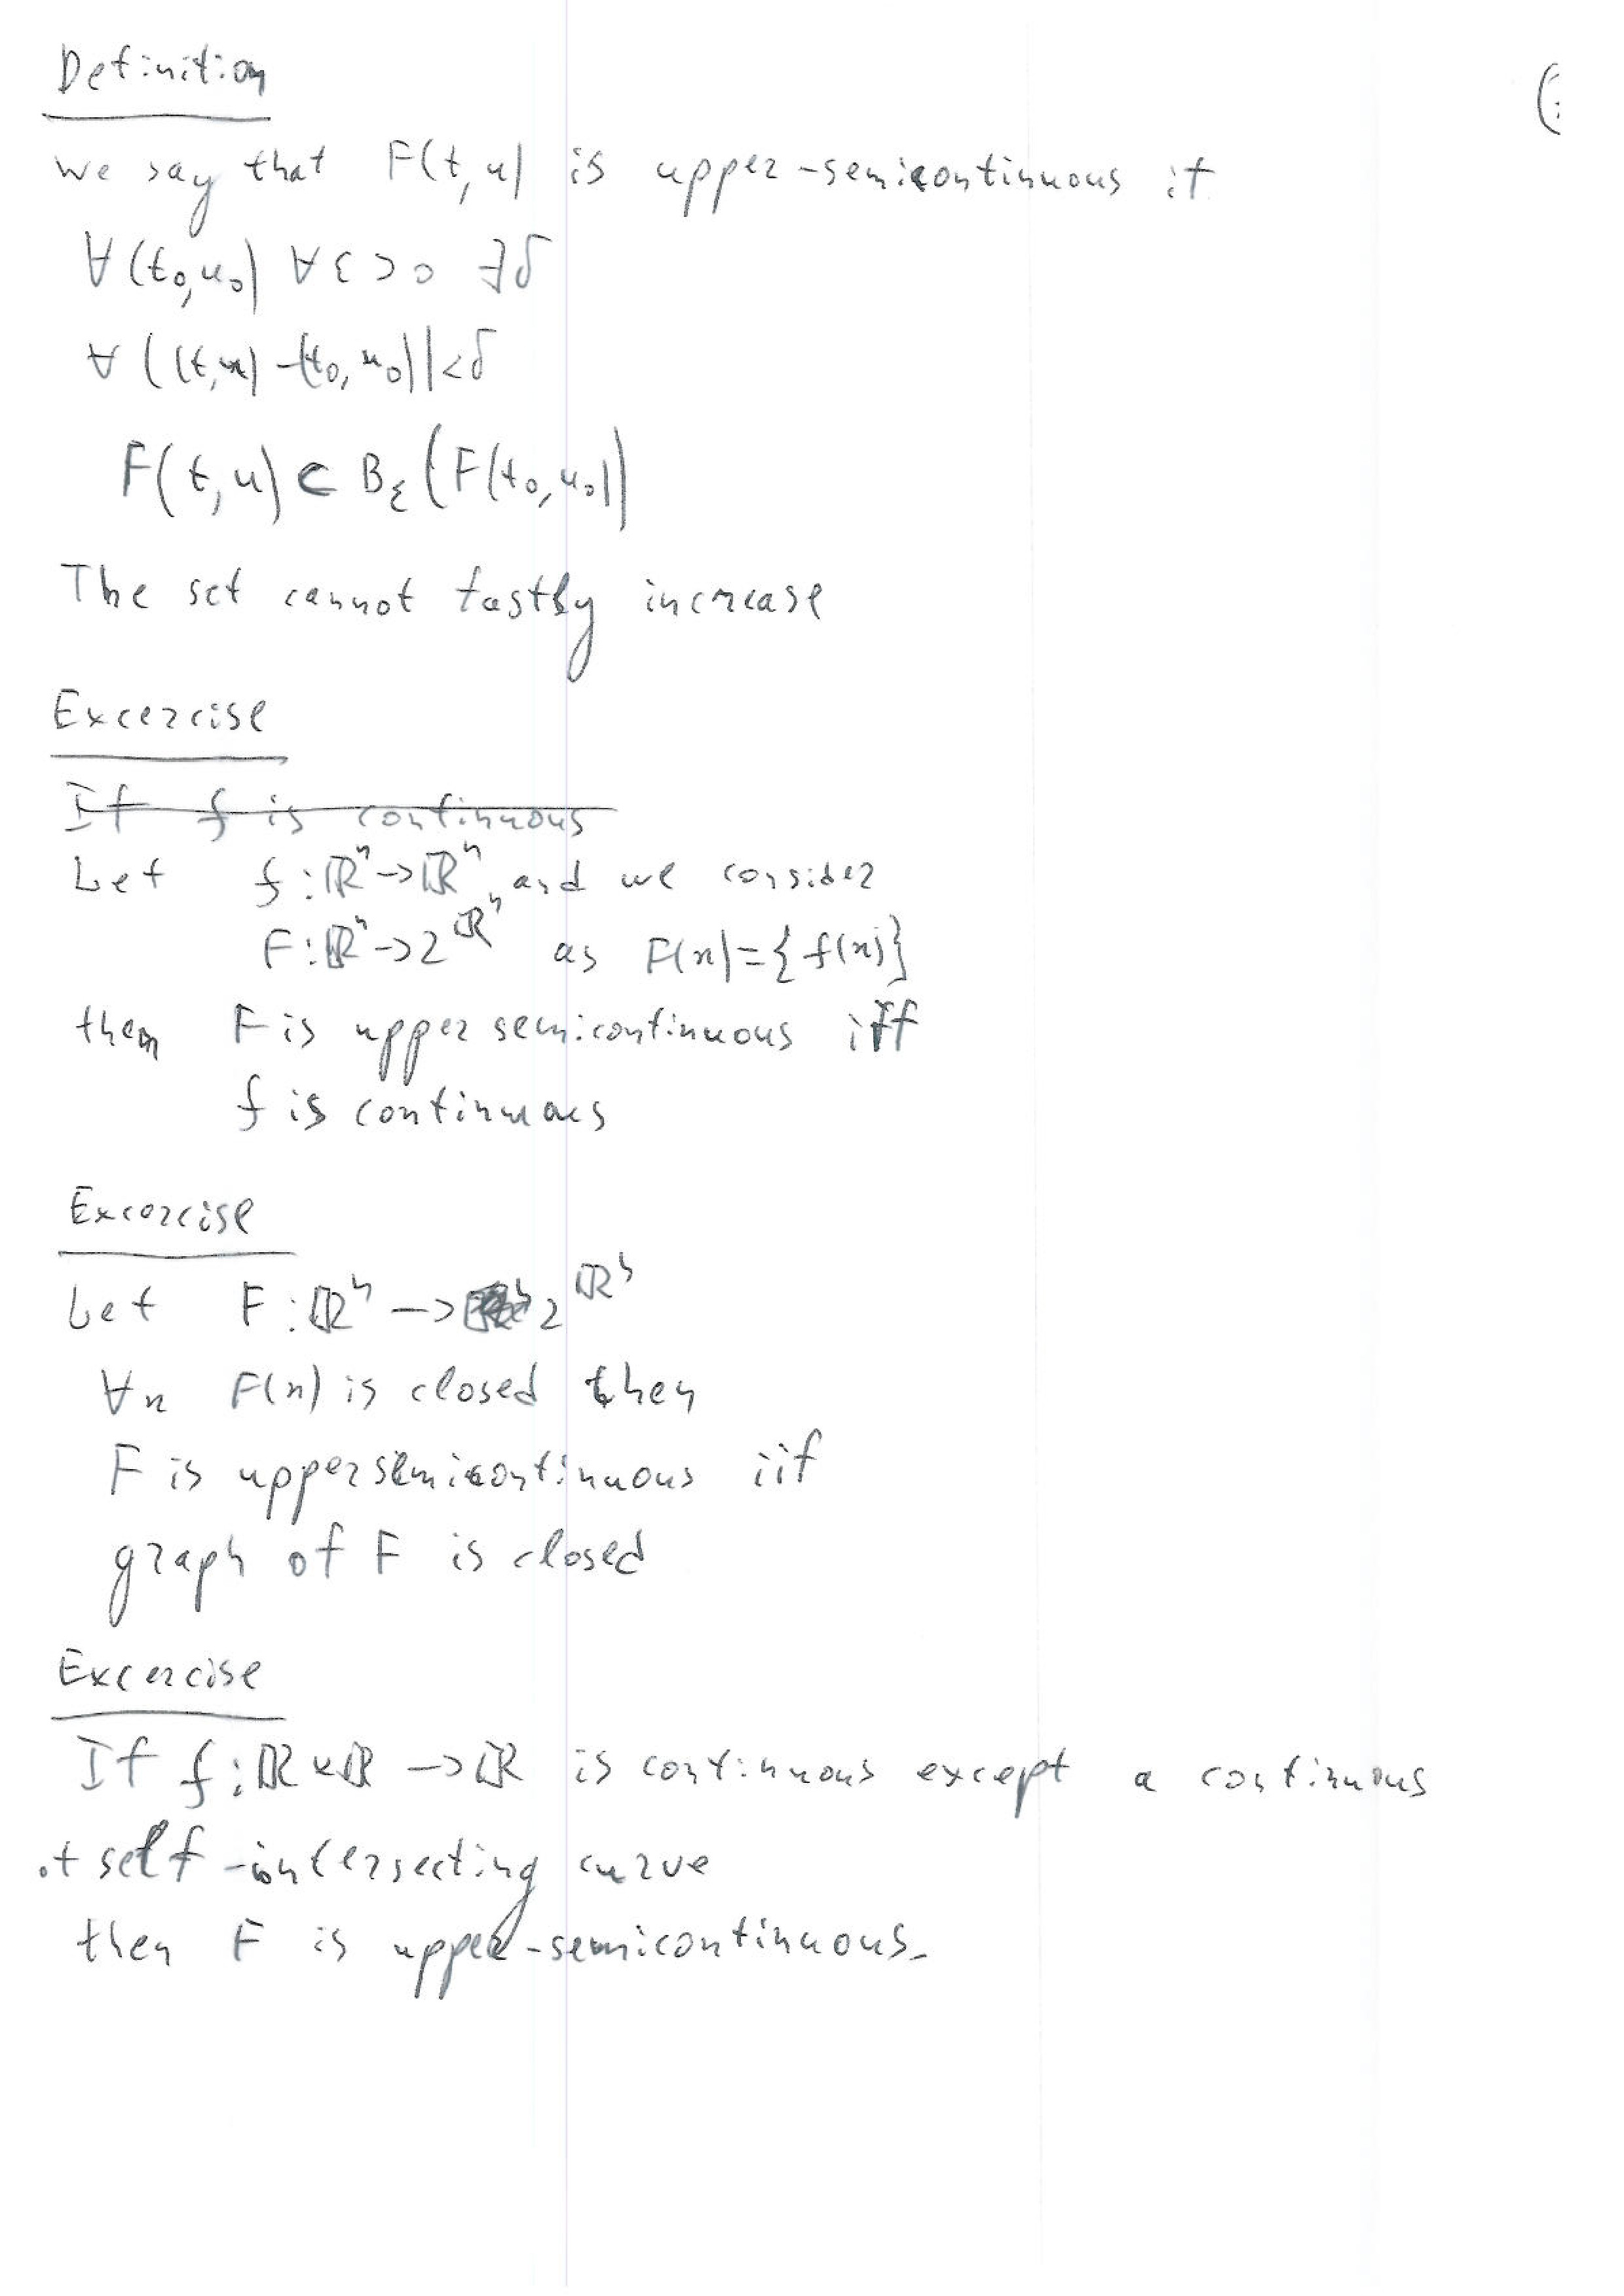 Definition
(:
We say that F(t,u) is upper-semicontinuous if
∀(t₀,u₀) ∀ε>0 ∃δ
∀ |(t,u)-(t₀,u₀)|<δ
F(t,u) ⊂ B_ε(F(t₀,u₀))
The set cannot fastly increase
Excercise
If f is continuous
Let f:ℝⁿ→ℝⁿ, and we consider
F:ℝⁿ→2^ℝⁿ as F(x)={f(x)}
then F is upper semicontinuous iff
f is continuous
Excercise
Let F:ℝⁿ→ 2^ℝⁿ
∀x F(x) is closed then
F is uppersemicontinuous iif
graph of F is closed
Excercise
If f:ℝ×ℝ→ℝ is continuous except a continuous
ot self-intersecting curve
then F is upper-semicontinuous.